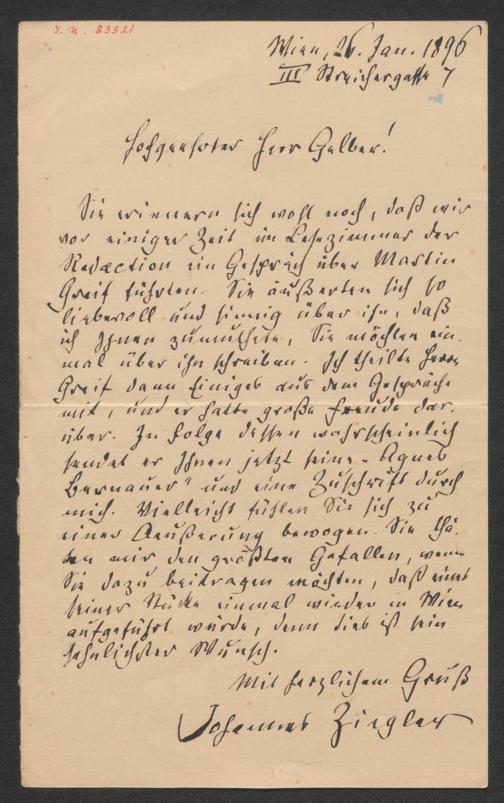 I. N. 83321
Wien, 26. Jan. 1896
III Streichergasse 7
Hochgeehrter Herr Gelber!
Sie erinnern sich wohl noch, daß wir
vor einiger Zeit im Lesezimmer der
Redaction ein Gespräch über Martin
Greif führten. Sie äußerten sich so
liebevoll und sinnig über ihn, daß
ich Ihnen zumuthete, Sie möchten ein-
mal über ihn schreiben. Ich theilte Herrn
Greif dann Einiges aus dem Gespräche
mit, und er hatte große Freude dar-
über. In Folge dessen wahrscheinlich
sendet er Ihnen jetzt seine „Agnes
Bernauer" und eine Zuschrift durch
mich. Vielleicht fühlen Sie sich zu
einer Aeußerung bewogen. Sie thä-
ten mir den größten Gefallen, wenn
Sie dazu beitragen möchten, daß eines
seiner Stücke einmal wieder in Wien
aufgeführt würde, denn dies ist sein
sehnlichster Wunsch.
Mit herzlichem Gruß
Johannes Ziegler